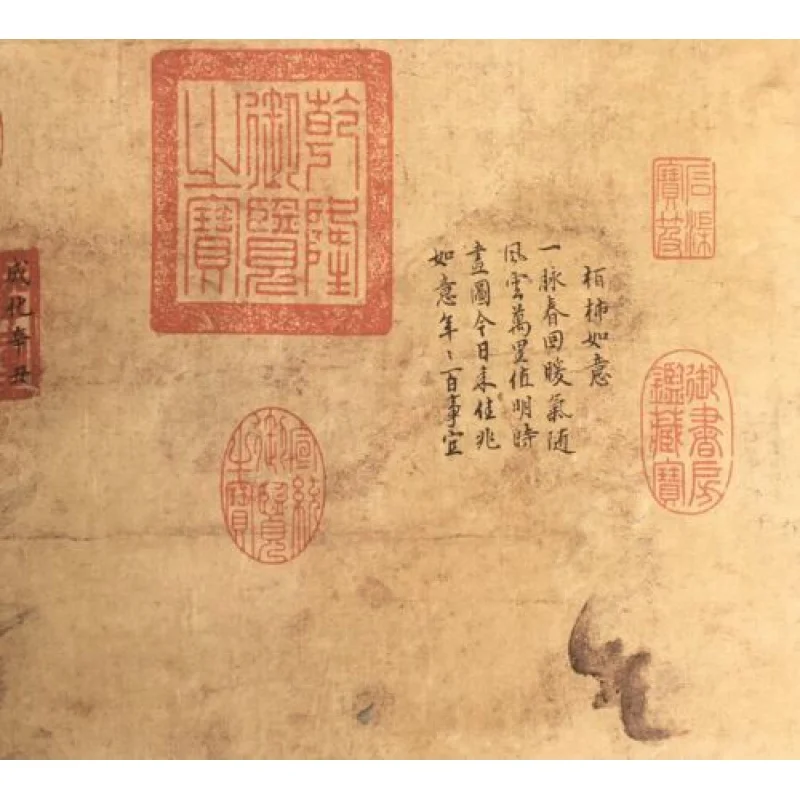 石渠
寶笈
御書房
鑑藏寶
柏柿如意
一脉春回暖氣随
風雲萬里值明時
畫圖今日来佳兆
如意年〻百事宜
乾隆
御覽
之寶
宣統
御覽
之寶
成化辛丑